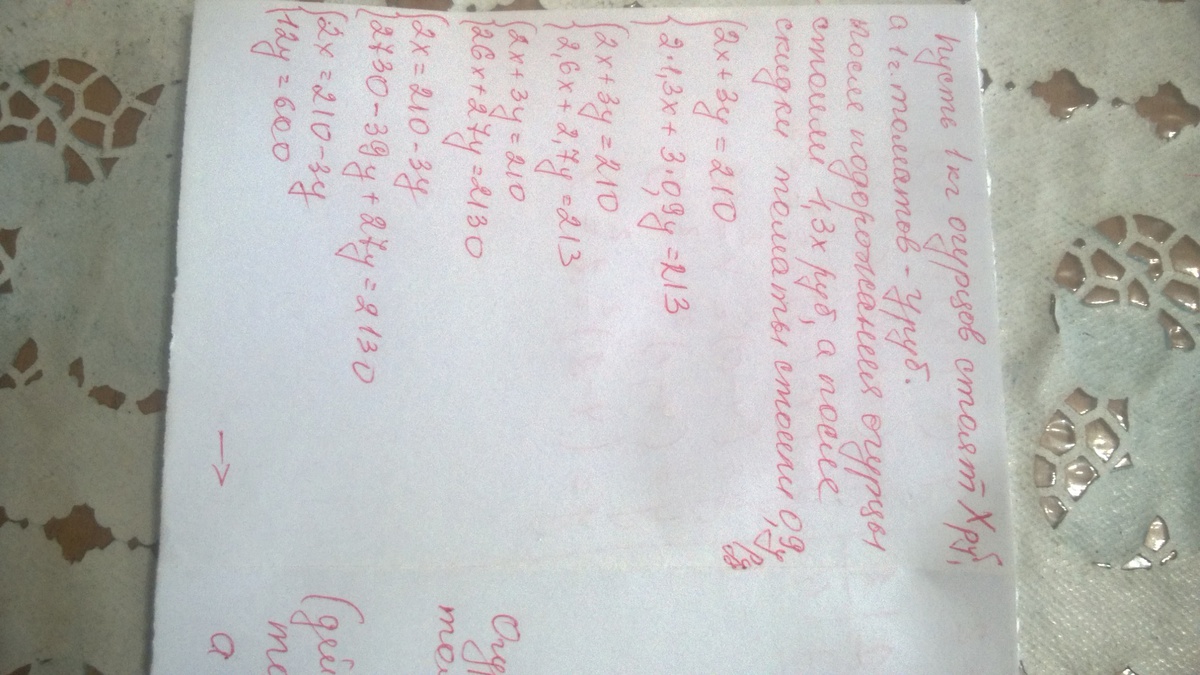 Пусть 1 кг огурцов стоят х руб,
а 1г. томатов - у руб.
после подорожания огурцы
стоили 1,3х руб, а после
скидки томаты стоили 0,9у
руб
{2х+3у=210
{2·1,3х+3·0,9у=213
{2х+3у=210
{2,6х+2,7у=213
{2х+3у=210
{26х+27у=2130
{2х=210-3у
{2730-39у+27у=2130
{2х=210-3у
{12у=600
→
Огур
том
(дей
то
а